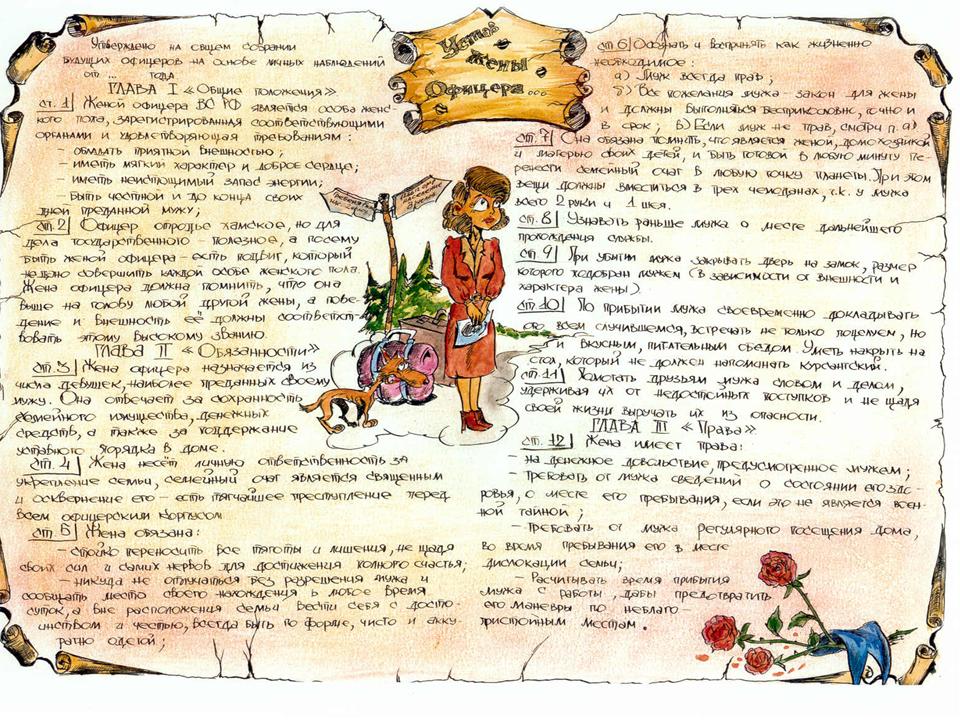 Устав
Жены
Офицера...
Утверждено на общем собрании
будущих офицеров на основе личных наблюдений
от ... года
ГЛАВА I «Общие положения»
ст. 1 Женой офицера ВС РФ является особа женс-
кого пола, зарегистрированная соответствующими
органами и удовлетворяющая требованиям:
– обладать приятной внешностью;
– иметь мягкий характер и доброе сердце;
– иметь неистощимый запас энергии;
– быть честной и до конца своих
дней преданной мужу;
ст. 2 Офицер отродье хамское, но для
дела государственного - полезное, а посему
быть женой офицера - есть подвиг, который
не дано совершить каждой особе женского пола.
Жена офицера должна помнить, что она
выше на голову любой другой жены, а пове-
дение и внешность её должны соответст-
вовать этому высокому званию.
ГЛАВА II «Обязанности»
ст. 3 Жена офицера назначается из
числа девушек, наиболее преданных своему
мужу. Она отвечает за сохранность
семейного имущества, денежных
средств, а также за поддержание
уставного порядка в доме.
ст. 4 Жена несёт личную ответственность за
укрепление семьи, семейный очаг является священным
и осквернение его - есть тягчайшее преступление перед
всем офицерским корпусом
ст. 5 Жена обязана:
– стойко переносить все тяготы и лишения, не щадя
своих сил и самих нервов для достижения полного счастья;
– никуда не отлучаться без разрешения мужа и
сообщать место своего нахождения в любое время
суток, а вне расположения семьи вести себя с досто-
инством и честью, всегда быть по форме, чисто и акку-
ратно одетой;
ст 6 Осознать и воспринять как жизненно
необходимое:
а) Муж всегда прав;
б) Все пожелания мужа - закон для жены
и должны выполняться беспрекословно, точно и
в срок; в) Если муж не прав, смотри п. а)
ст. 7 Она обязана помнить, что является женой, домохозяйкой
и матерью своих детей, и быть готовой в любую минуту пе-
ренести семейный очаг в любую точку планеты. При этом
вещи должны вместиться в трех чемоданах, т.к. у мужа
всего 2 руки и 1 шея.
ст. 8 Узнавать раньше мужа о месте дальнейшего
прохождения службы.
ст 9 При убытии мужа закрывать дверь на замок, размер
которого подобран мужем (в зависимости от внешности и
характера жены).
ст. 10 По прибытии мужа своевременно докладывать
обо всем случившемся, встречать не только поцелуем, но
и вкусным, питательным обедом. Уметь накрыть на
стол, который не должен напоминать курсантский.
ст. 11 Помогать друзьям мужа словом и делом,
удерживая их от недостойных поступков и не щадя
своей жизни выручать их из опасности.
ГЛАВА III «Права»
ст. 12 Жена имеет права:
– на денежное довольствие, предусмотренное мужем;
– требовать от мужа сведений о состоянии его здо-
ровья, о месте его пребывания, если это не является воен-
ной тайной;
– требовать от мужа регулярного посещения дома,
во время пребывания его в месте
дислокации семьи;
– Расчитывать время прибытия
мужа с работы, дабы предотвратить
его маневры по неблаго-
пристойным местам.